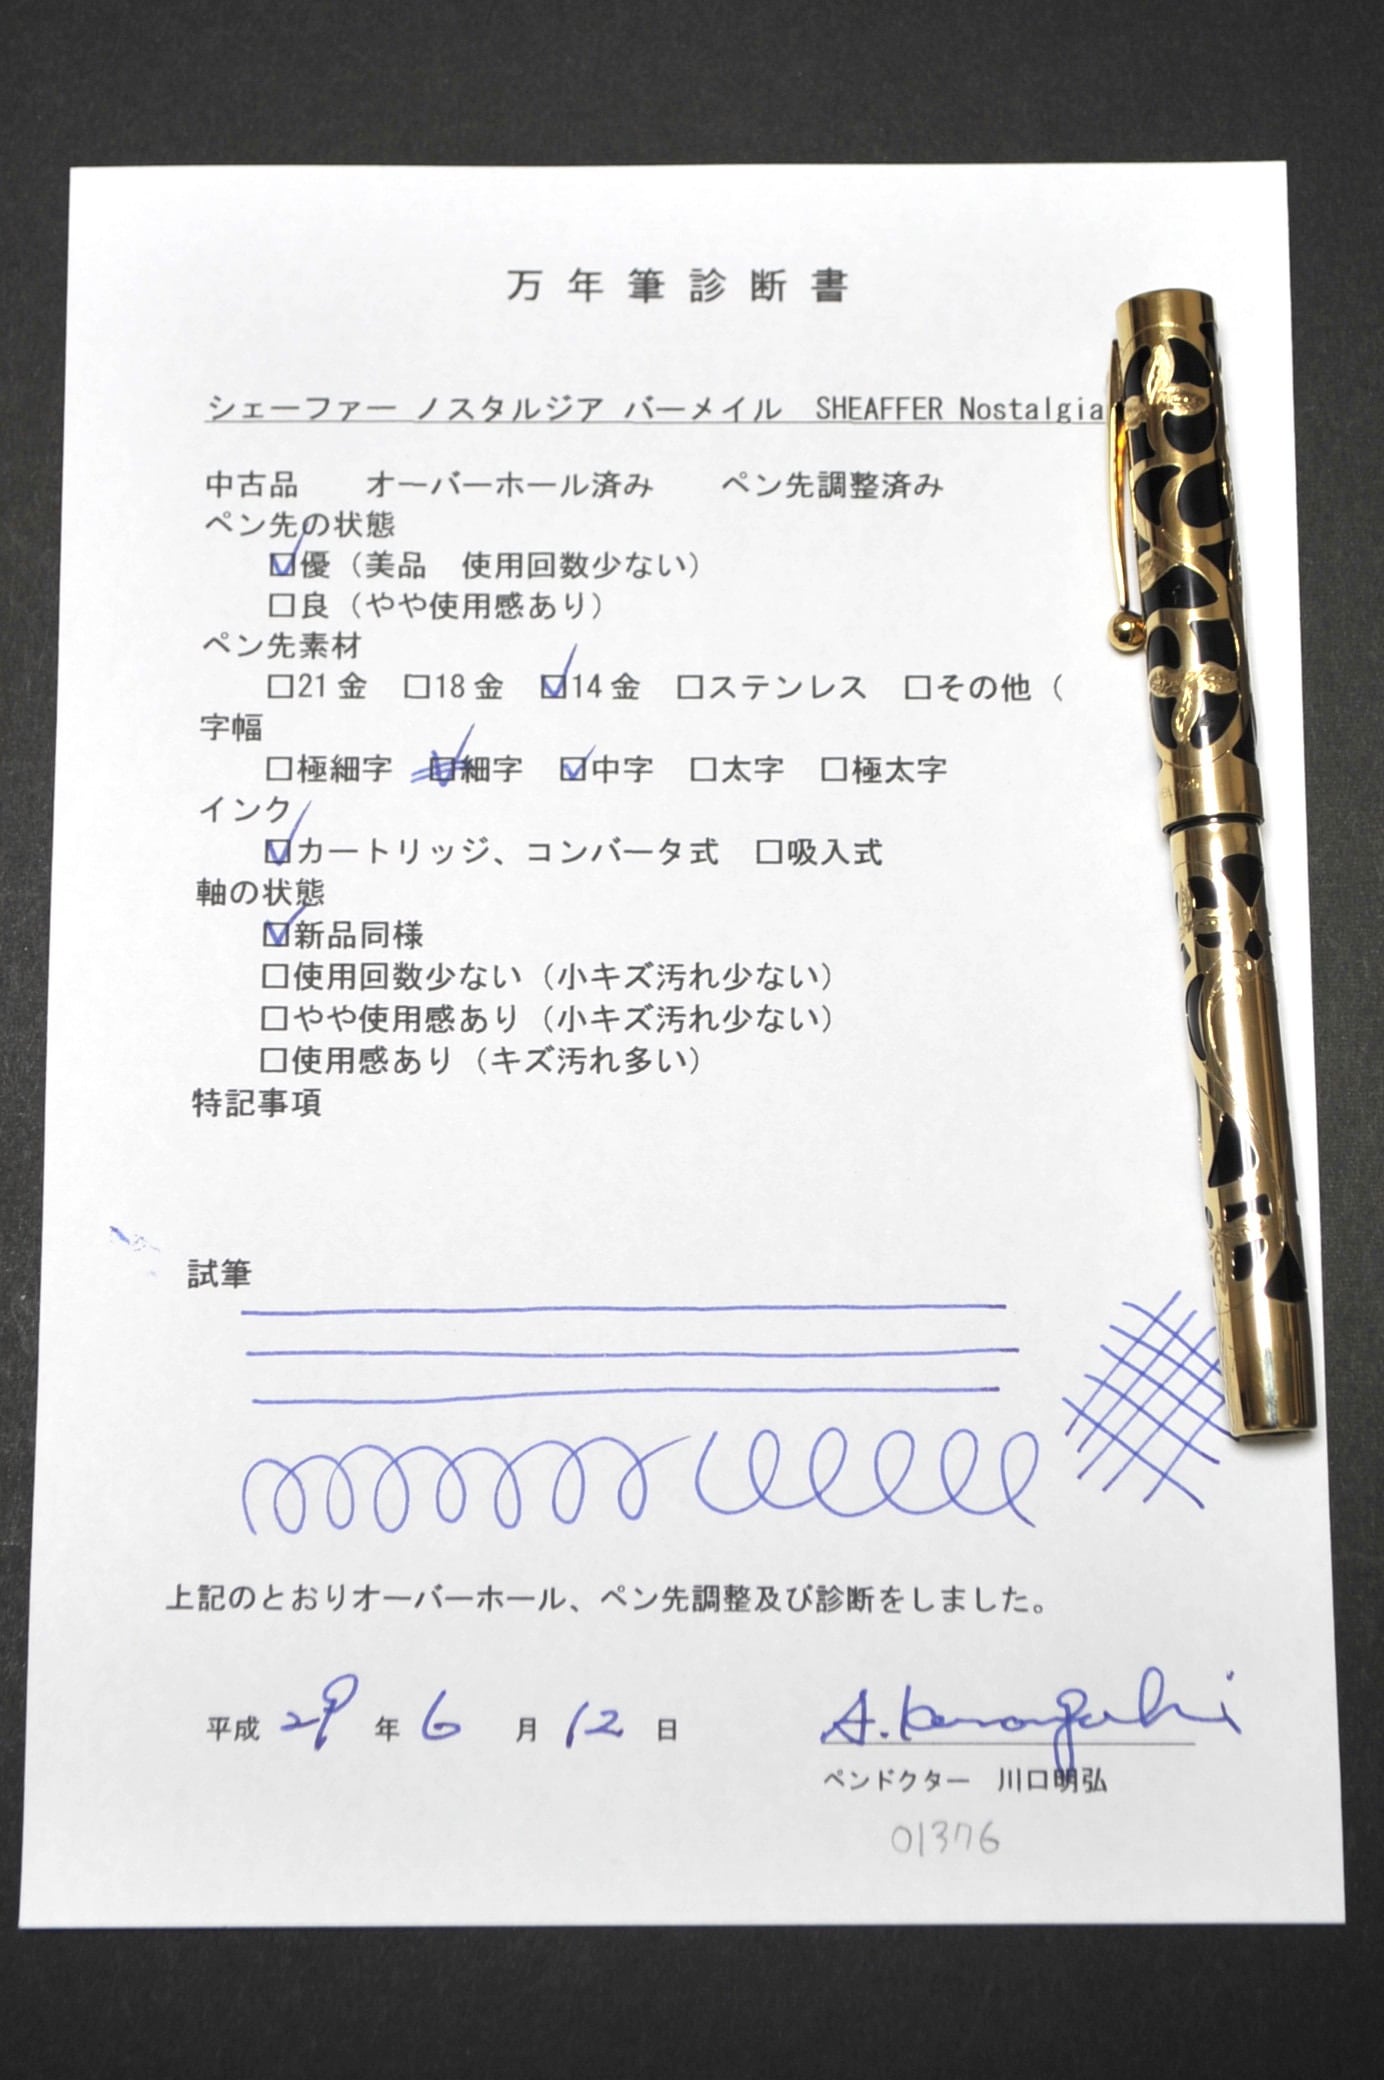 万年筆診断書
シェーファー ノスタルジア バーメイル　SHEAFFER Nostalgia
中古品　　オーバーホール済み　　ペン先調整済み
ペン先の状態
☑優（美品　使用回数少ない）
□良（やや使用感あり）
ペン先素材
□21金　□18金　☑14金　□ステンレス　□その他（
字幅
□極細字　☑細字　☑中字　□太字　□極太字
インク
☑カートリッジ、コンバータ式　□吸入式
軸の状態
☑新品同様
□使用回数少ない（小キズ汚れ少ない）
□やや使用感あり（小キズ汚れ少ない）
□使用感あり（キズ汚れ多い）
特記事項
試筆
上記のとおりオーバーホール、ペン先調整及び診断をしました。
平成 29 年 6 月 12 日
A. Kawaguchi
ペンドクター　川口明弘
01376